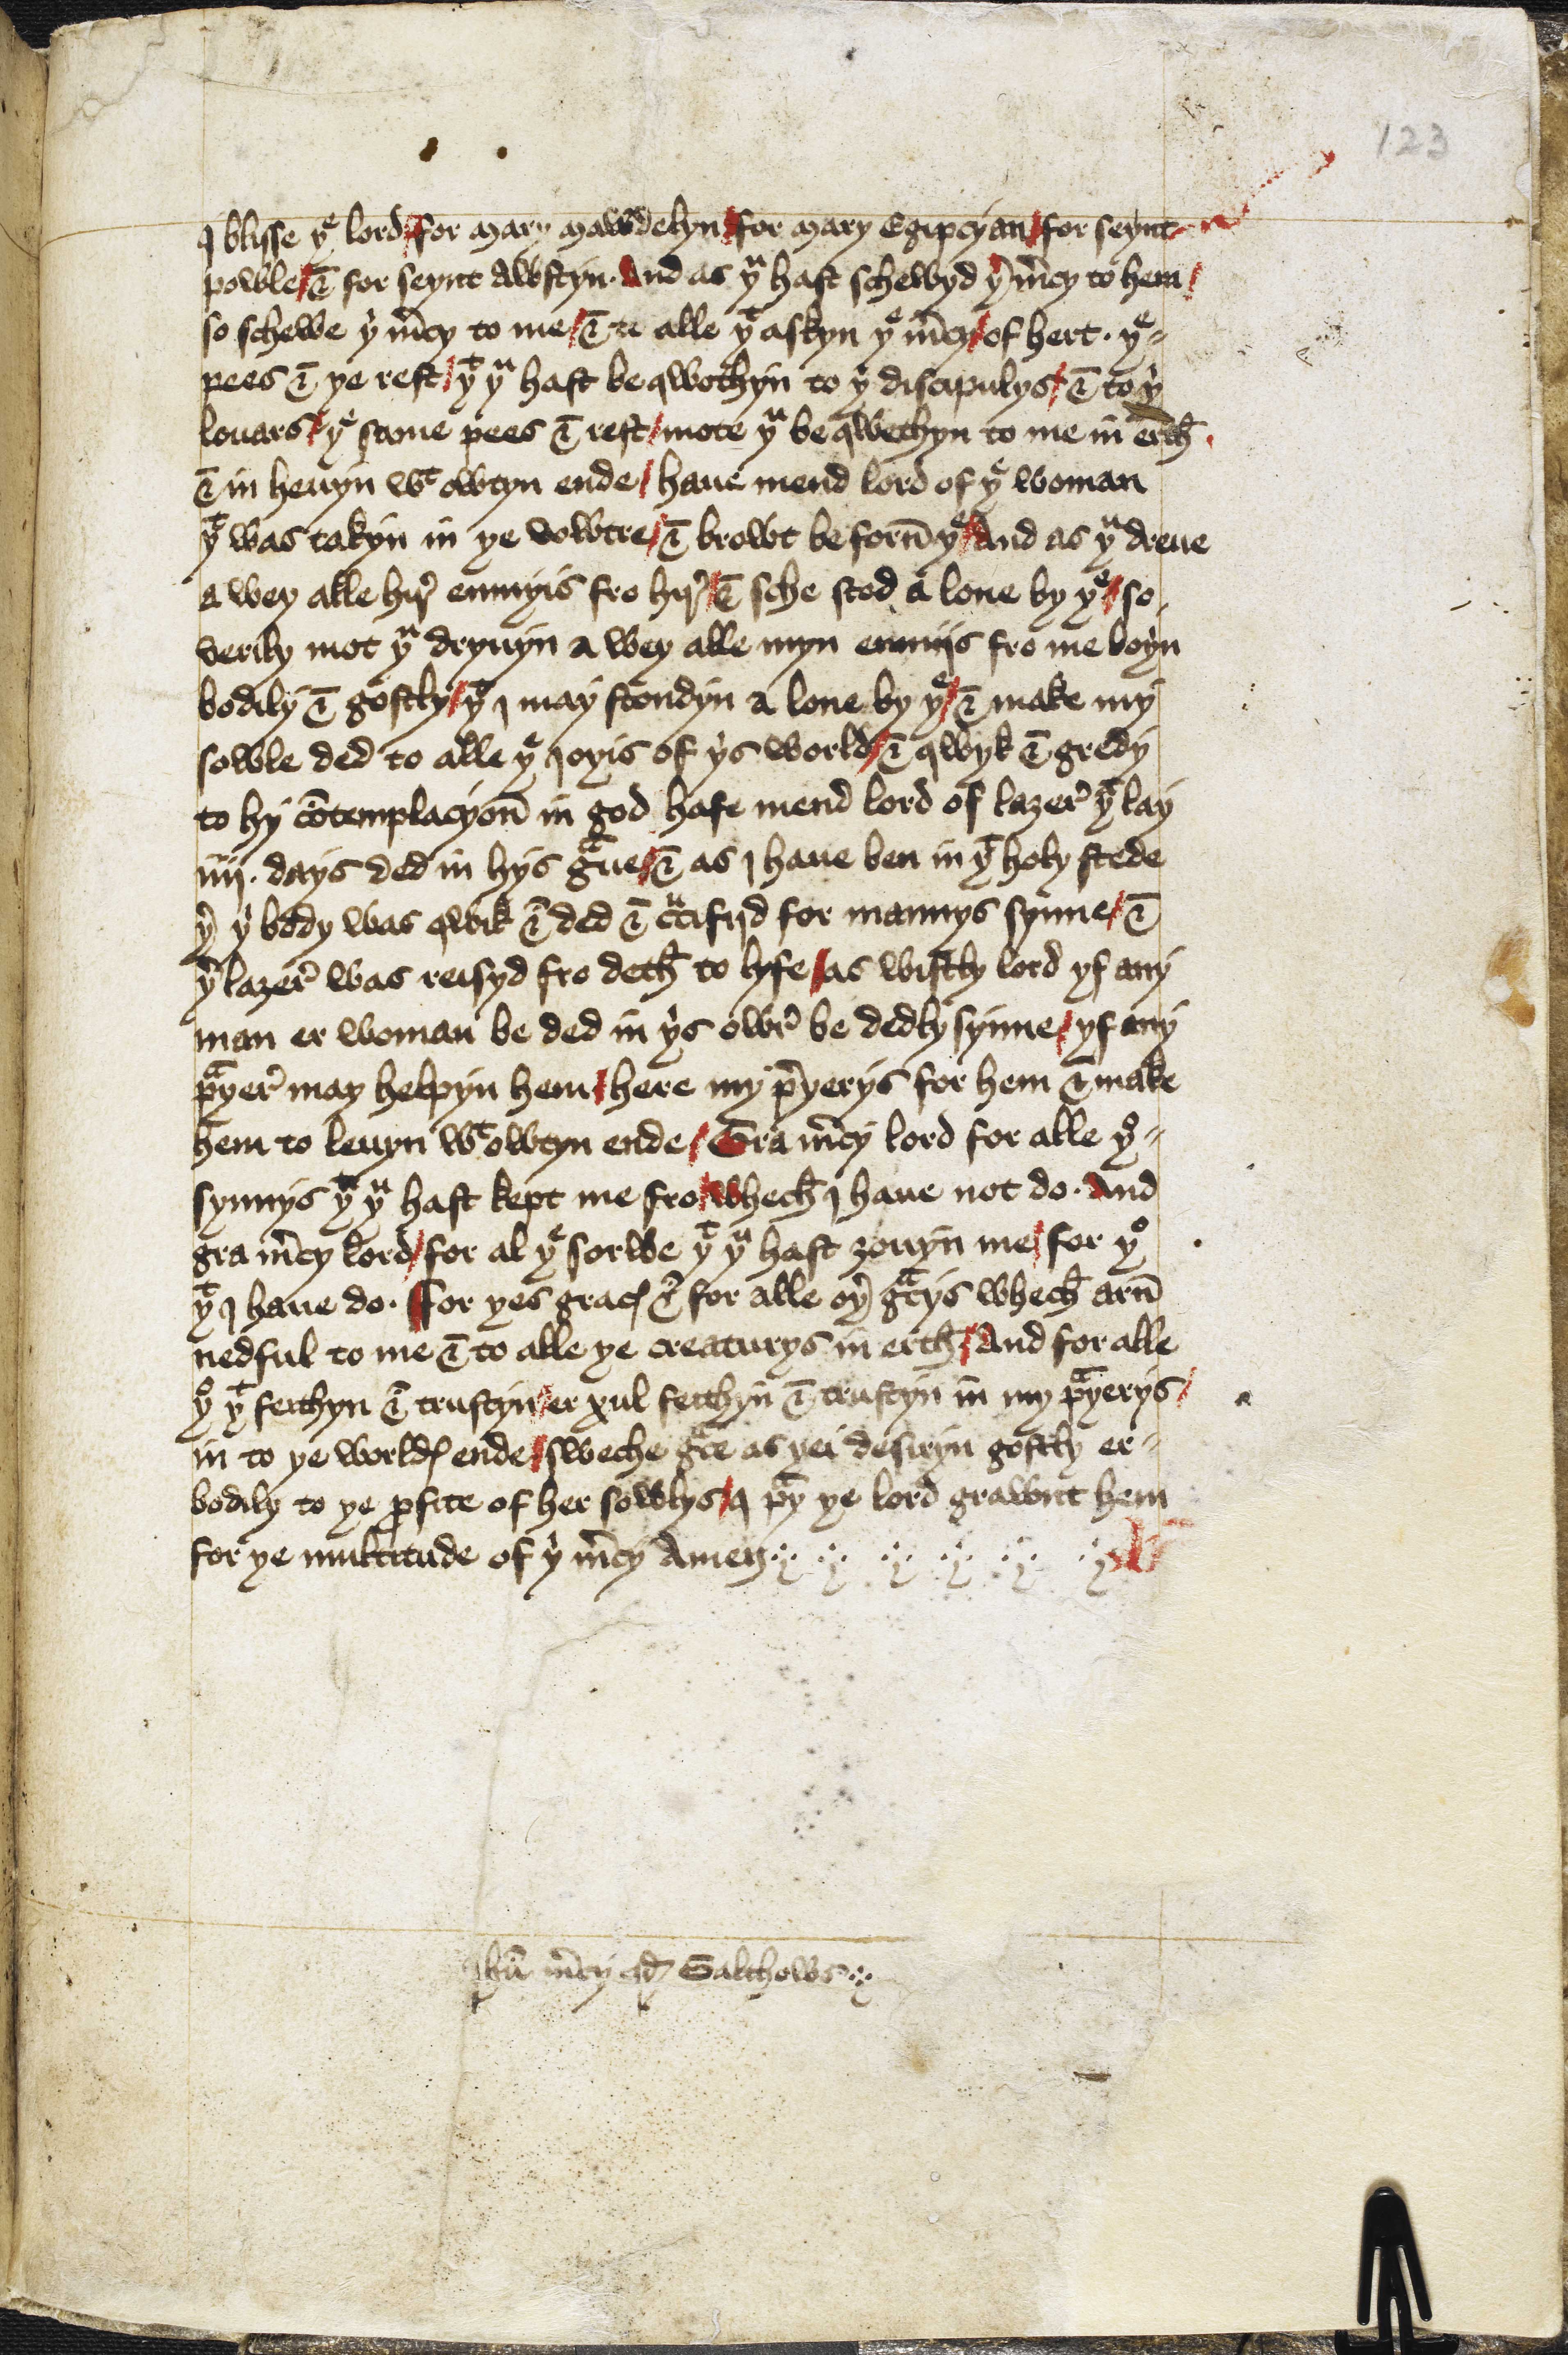 123
I blisse yͤ lord / for mary mawdelyn / for mary Egipcyan / for seynt
powle / & for seynt Awstyn . And as yᵘ hast schewyd yⁱ m̄cy to hem /
so schewe yⁱ m̄cy to me / & to alle yᵗ askyn yͤ m̄cy / of hert . yͤ
pees & ye rest / yᵗ yᵘ hast beqwothyn to yⁱ discipulys / & to yⁱ
louars / yͤ same pees & rest / mote yᵘ beqwethyn to me in erth .
& in heuyn wᵗ owtyn ende / haue mend lord of yͤ woman
yᵗ was takyn in ye vowtre / & browt be forn̄ yͤ / And as yᵘ dreue
a wey alle hir̛ enmyis fro hir̛ / & sche stod a lone by yͤ / so
verily mot yᵘ dryuyn a wey alle myn enmijs fro me boyn
bodily & gostly / yᵗ I may stondyn a lone by yͤ / & make my
sowle ded to alle yͤ joyis of yⁱs world / & qwyk & gredy
to hy cōtemplacyon̄ in god hafe mend lord of lazer̛ yᵗ lay
iiij . days ded in hys gᵃue / & as I haue ben in yᵗ holy stede
yʳ yⁱ body was qwik & ded & cᵘcifijd for mannys synne / &
yʳ lazer̛ was reisyd fro deth to lyfe / as wistly lord yf any
man er woman be ded in yⁱs owr̛ be dedly synne / yf any
pᵃyer̛ may helpyn hem / here my p̄yerys for hem & make
hem to leuyn wᵗ owtyn ende / Gra m̄cy lord for alle yͦ
synnys yᵗ yᵘ hast kept me fro / whech I haue not do . And
gra m̄cy lord / for al yͤ sorwe yᵗ yᵘ hast ȝouyn me / for yͦ
yᵗ I haue do . For yes graces & for alle oyʳ gᵃcys whech arn̄
nedful to me & to alle ye creaturys in erth / And for alle
yͦ yᵗ feithyn & trustyn / er xul feithyn & trustyn in my pᵃyerys /
in to ye worldes ende / sweche gᵃce as yei desiryn gostly er
bodily to ye ꝓfite of her sowlys / I pᵃy ye lord grawnt hem
for ye multitude of yⁱ m̄cy Amen
Ihū m̄cy qd Salthows